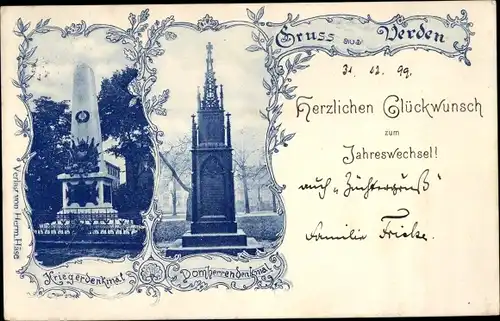 Gruss aus Verden
31. 12. 99.
Herzlichen Glückwunsch
zum
Jahreswechsel!
auch
Familie Fricke.
Kriegerdenkmal
Domherrendenkmal
Verlag von Herm. Häse